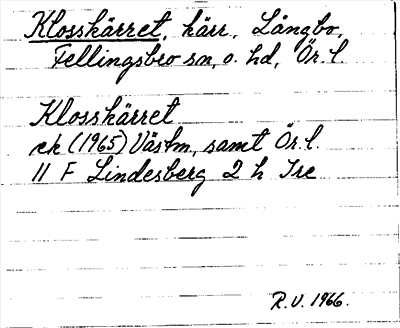 Klosskärret, kärr, Långbo,
Fellingsbro sn, o. hd, Ör. l.
Klosskärret
ek (1965) Västm, samt Ör. l.
11 F Lindesberg 2 h Tre
R.V. 1966.